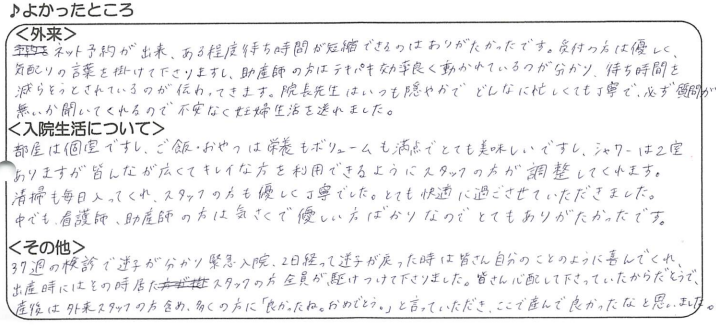 ♪よかったところ
<外来>
ネット予約が出来、ある程度待ち時間が短縮できるのはありがたかったです。受付の方は優しく、
気配りの言葉を掛けて下さりますし、助産師の方はテキパキ効率良く動かれているのが分かり、待ち時間を
減らそうとされているのが伝わってきます。院長先生はいつも穏やかで どんなに忙しくても丁寧で、必ず質問が
無いか聞いてくれるので不安なく妊婦生活を送れました。
<入院生活について>
部屋は個室ですし、ご飯・おやつは栄養もボリュームも満点でとても美味しいですし、シャワーは2室
ありますが皆んなが広くてキレイな方を利用できるようにスタッフの方が調整してくれます。
清掃も毎日入ってくれ、スタッフの方も優しく丁寧でした。とても快適に過ごさせていただきました。
中でも、看護師、助産師の方は気さくで優しい方ばかりなのでとてもありがたかったです。
<その他>
37週の検診で逆子が分かり緊急入院、2日経って逆子が戻った時は皆さん自分のことのように喜んでくれ、
出産時にはその時居たスタッフの方全員が駆けつけて下さりました。皆さん心配して下さっていたからだそうで、
産後は外来スタッフの方含め、多くの方に「良かったね。おめでとう。」と言っていただき、ここで産んで良かったなと思いました。